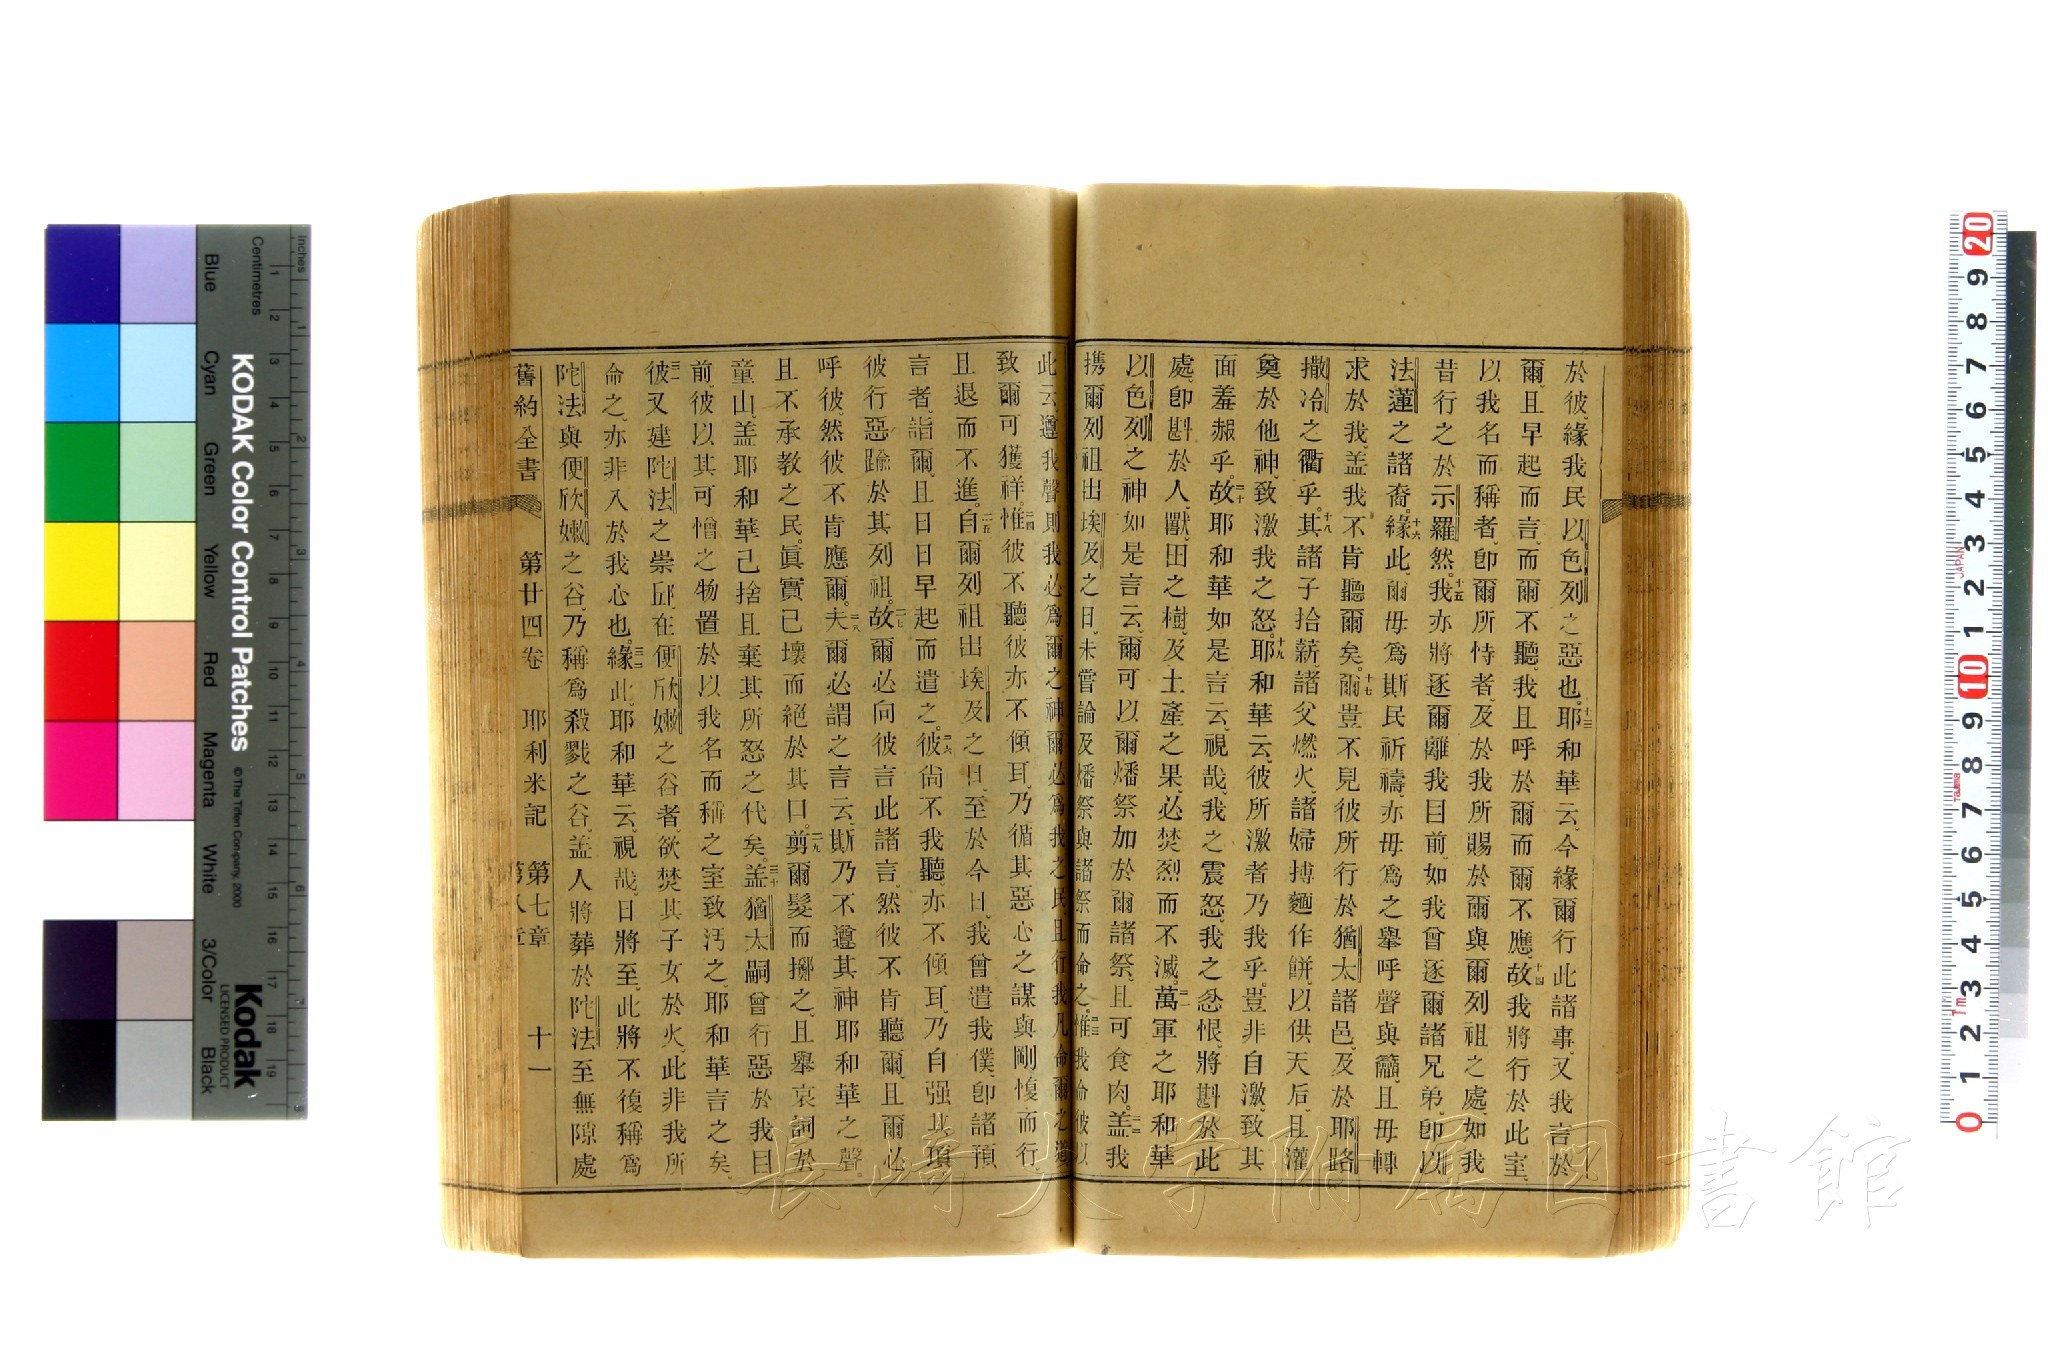 於彼、緣我民以色列之惡也。十三耶和華云、今緣爾行此諸事、又我言於
爾、且早起而言、而爾不聽、我且呼於爾而爾不應、十四故我將行於此室、
以我名而稱者、卽爾所恃者、及於我所賜於爾與爾列祖之處、如我
昔行之於示羅然。十五我亦將逐爾離我目前、如我曾逐爾諸兄弟、卽以
法蓮之諸裔。十六緣此、爾毋爲斯民祈禱、亦毋爲之舉呼聲與籲、且毋轉
求於我、盖我不肯聽爾矣。十七爾豈不見彼所行於猶太諸邑、及於耶路
撒冷之衢乎。十八其諸子拾薪、諸父燃火、諸婦摶麵作餅、以供天后、且灌
奠於他神、致激我之怒。十九耶和華云、彼所激者乃我乎。豈非自激、致其
面羞赧乎。二十故耶和華如是言云、視哉、我之震怒、我之忿恨、將斟於此
處、卽斟於人、獸、田之樹、及土產之果、必焚烈而不滅。二一萬軍之耶和華
以色列之神如是言云、爾可以爾燔祭加於爾諸祭、且可食肉。二二盖我
携爾列祖出埃及之日、未嘗論及燔祭與諸祭而命之。二三惟我命彼以
此云、遵我聲、則我必爲爾之神、爾必爲我之民、且行我凡命爾之道、
致爾可獲祥。二四惟彼不聽、彼亦不傾耳、乃循其惡心之謀與剛愎而行、
且退而不進。二五自爾列祖出埃及之日、至於今日、我曾遣我僕、卽諸預
言者、詣爾、且日日早起而遣之。二六彼尚不我聽、亦不傾耳、乃自强其項、
彼行惡踰於其列祖。二七故爾必向彼言此諸言、然彼不肯聽爾、且爾必
呼彼、然彼不肯應爾。二八夫爾必謂之言云、斯乃不遵其神耶和華之聲、
且不承教之民。眞實已壞而絕於其口。二九剪爾髮而擲之、且舉哀詞於
童山、盖耶和華已捨且棄其所怒之代矣。三十盖猶太嗣曾行惡於我目
前、彼以其可憎之物置於以我名而稱之室、致汚之、耶和華言之矣、
三一彼又建陀法之崇邱、在便欣嫩之谷者、欲焚其子女於火、此非我所
命之、亦非入於我心也。三二緣此、耶和華云、視哉、日將至、此將不復稱爲
陀法與便欣嫩之谷、乃稱爲殺戮之谷、盖人將葬於陀法至無隙處
舊約全書 第廿四卷 耶利米記 第七章 第八章 十一
長崎大学附属図書館
KODAK Color Control Patches
© The Tiffen Company, 2000
Kodak
LICENSED PRODUCT
Inches
Centimetres
Blue Cyan Green Yellow Red Magenta White 3/Color Black
JAPAN